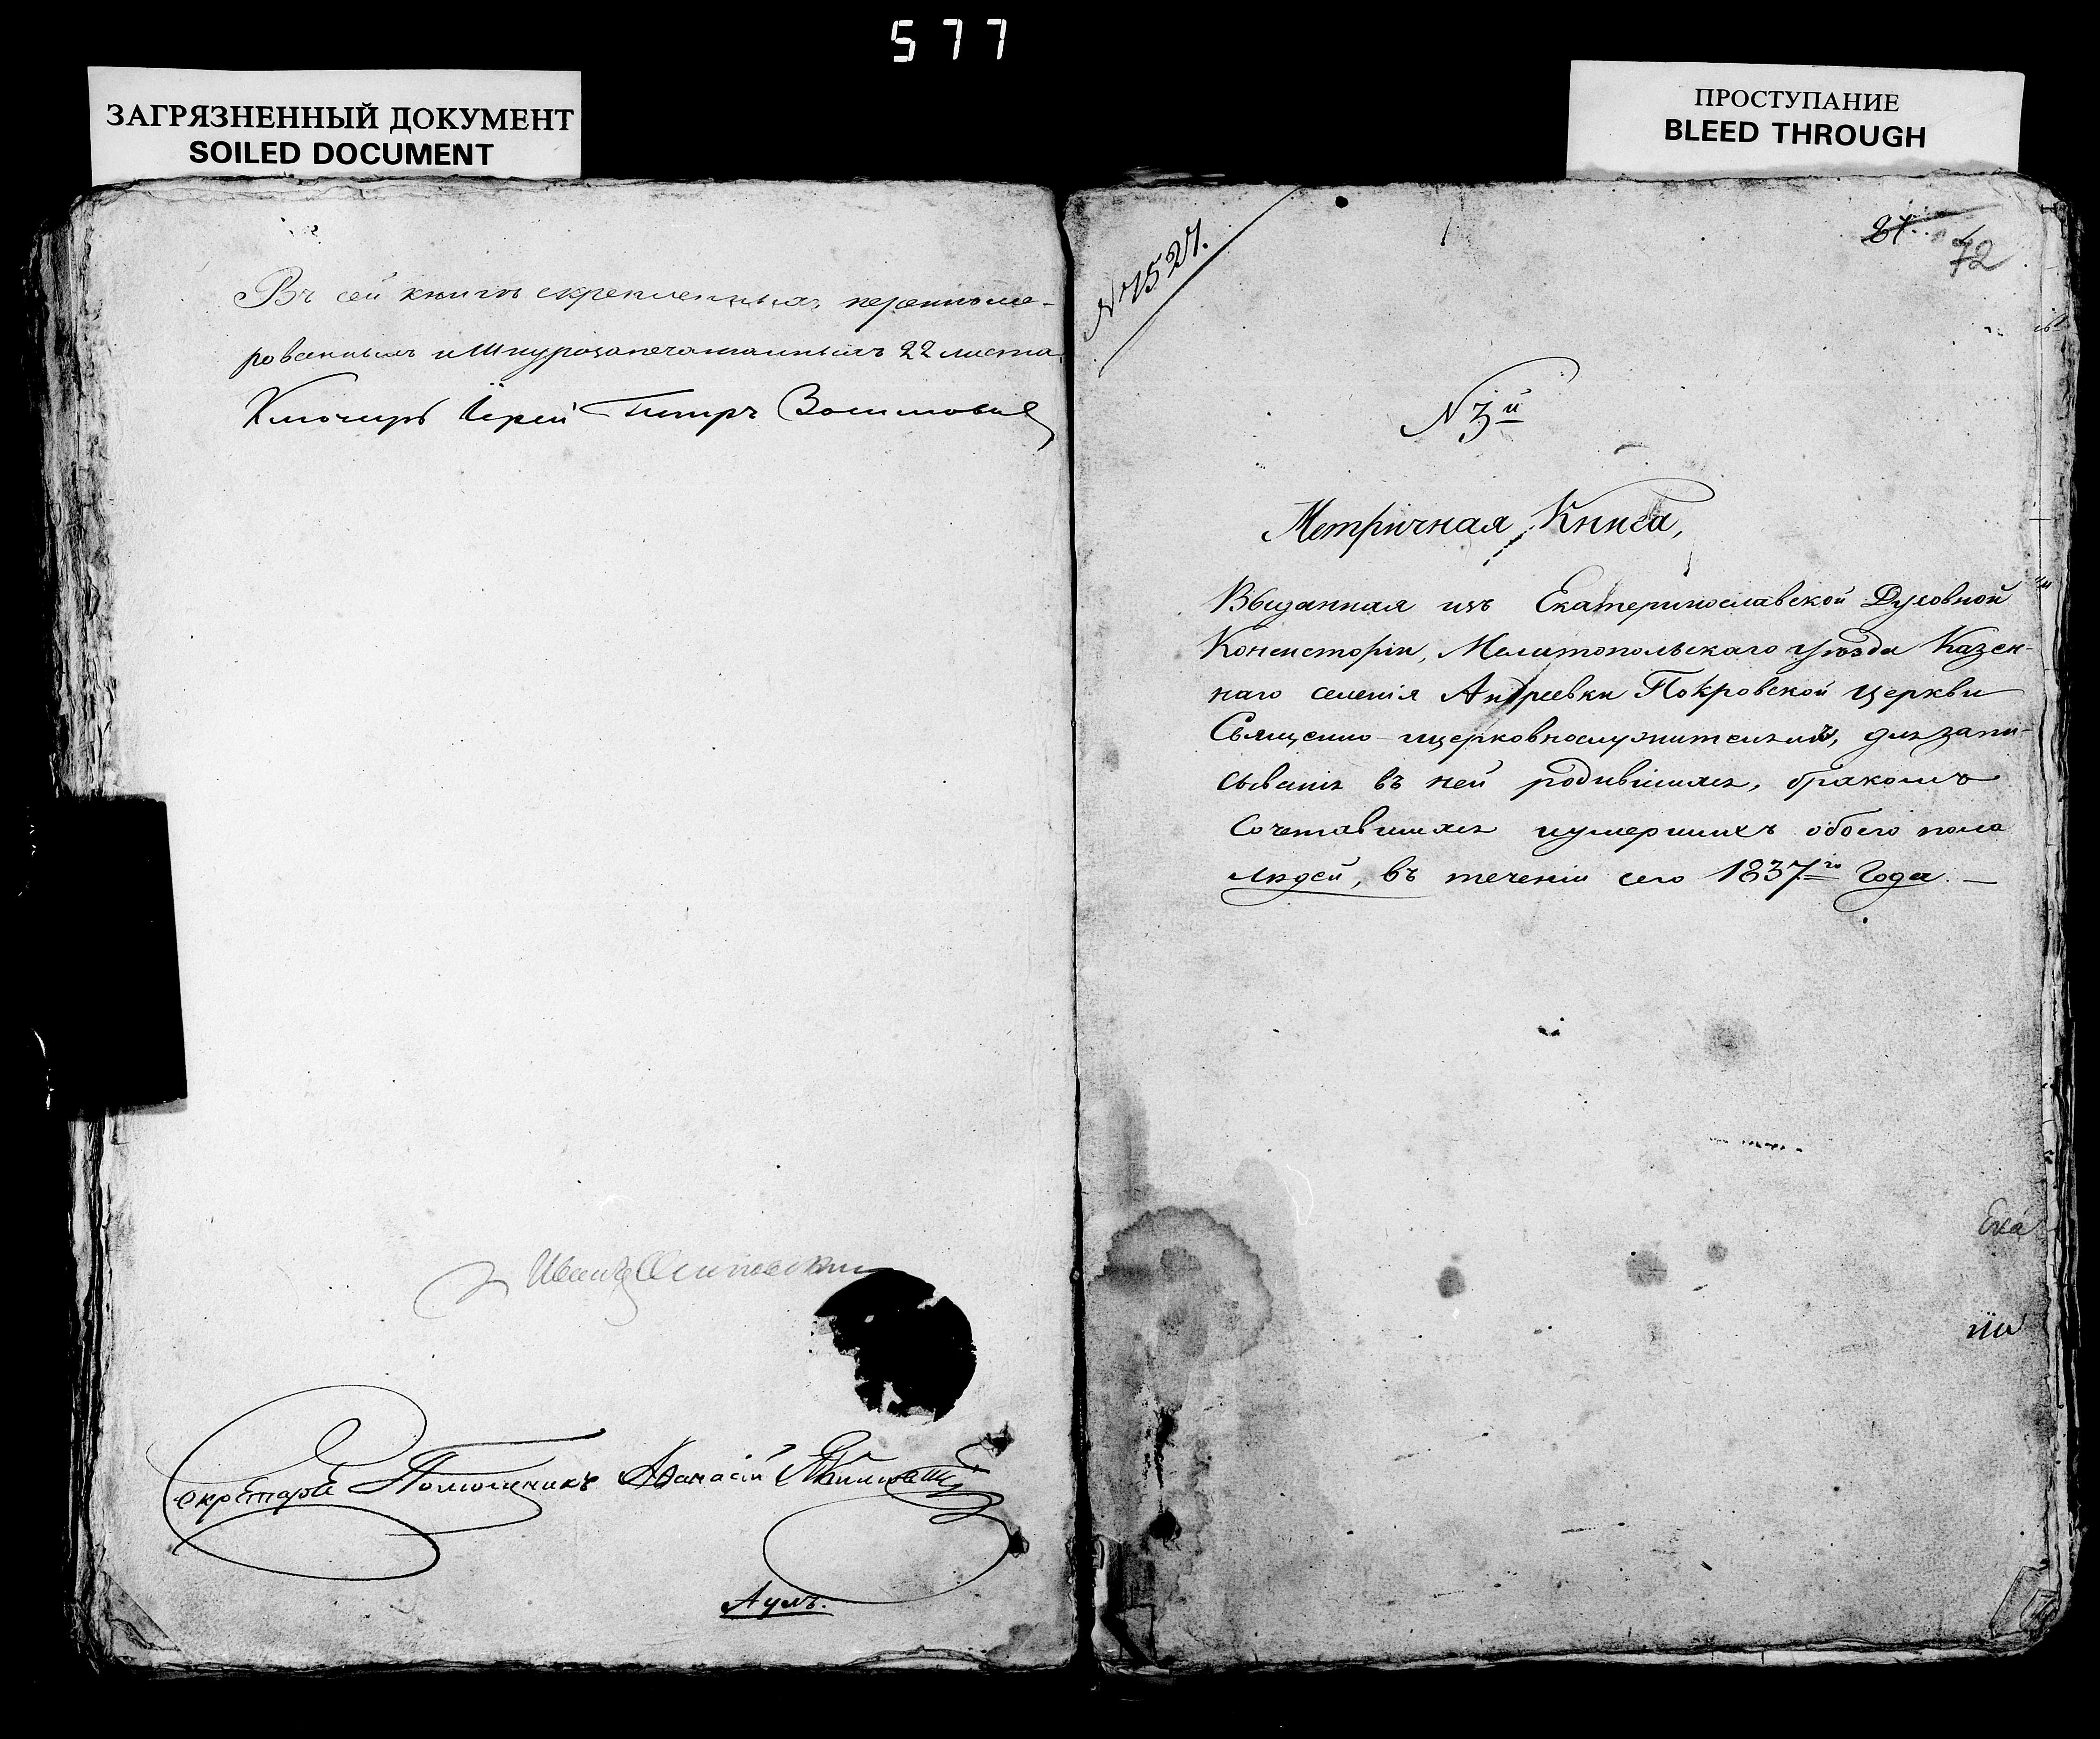 577
ЗАГРЯЗНЕННЫЙ ДОКУМЕНТ
SOILED DOCUMENT
ПРОСТУПАНИЕ
BLEED THROUGH
Въ сей книгѣ скрепленныхъ перенуме-
рованныхъ и Шнурозапечатанныхъ 22 листа
Ключарь Іерей Петръ
Иванъ
Секретарь Помошникъ Афанасій
№ 1527.
27
72
N 3й
Метричная Книга,
Выданная изъ Екатеринославской Духовной
Консисторіи, Мелитопольскаго уѣзда Казен-
наго селенія Андреевки Покровской церкви
Священно-ицерковнослужителямъ, для запи-
сыванія въ ней родившихся, бракомъ
сочетавшихся иумершихъ обоего пола
людей, въ теченіи сего 1837го Года. —